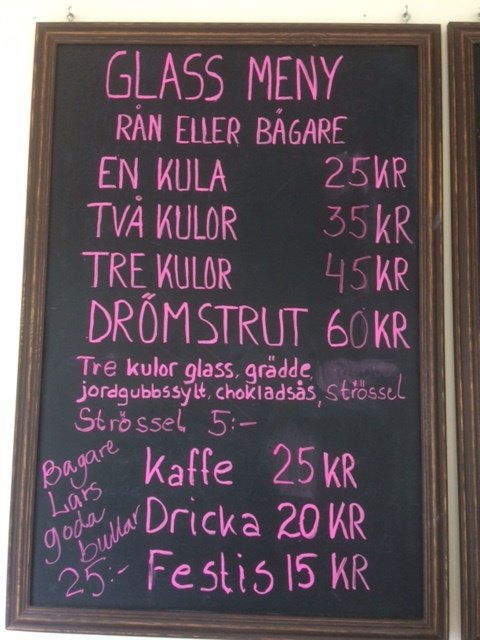 GLASS MENY
RÅN ELLER BÄGARE
EN KULA 25KR
TVÅ KULOR 35KR
TRE KULOR 45KR
DRÖMSTRUT 60KR
Tre kulor glass, grädde,
jordgubbssylt, chokladsås, strössel
Strössel 5:-
Kaffe 25 KR
Dricka 20 KR
Festis 15 KR
Bagare
Lars
goda
bullar
25:-